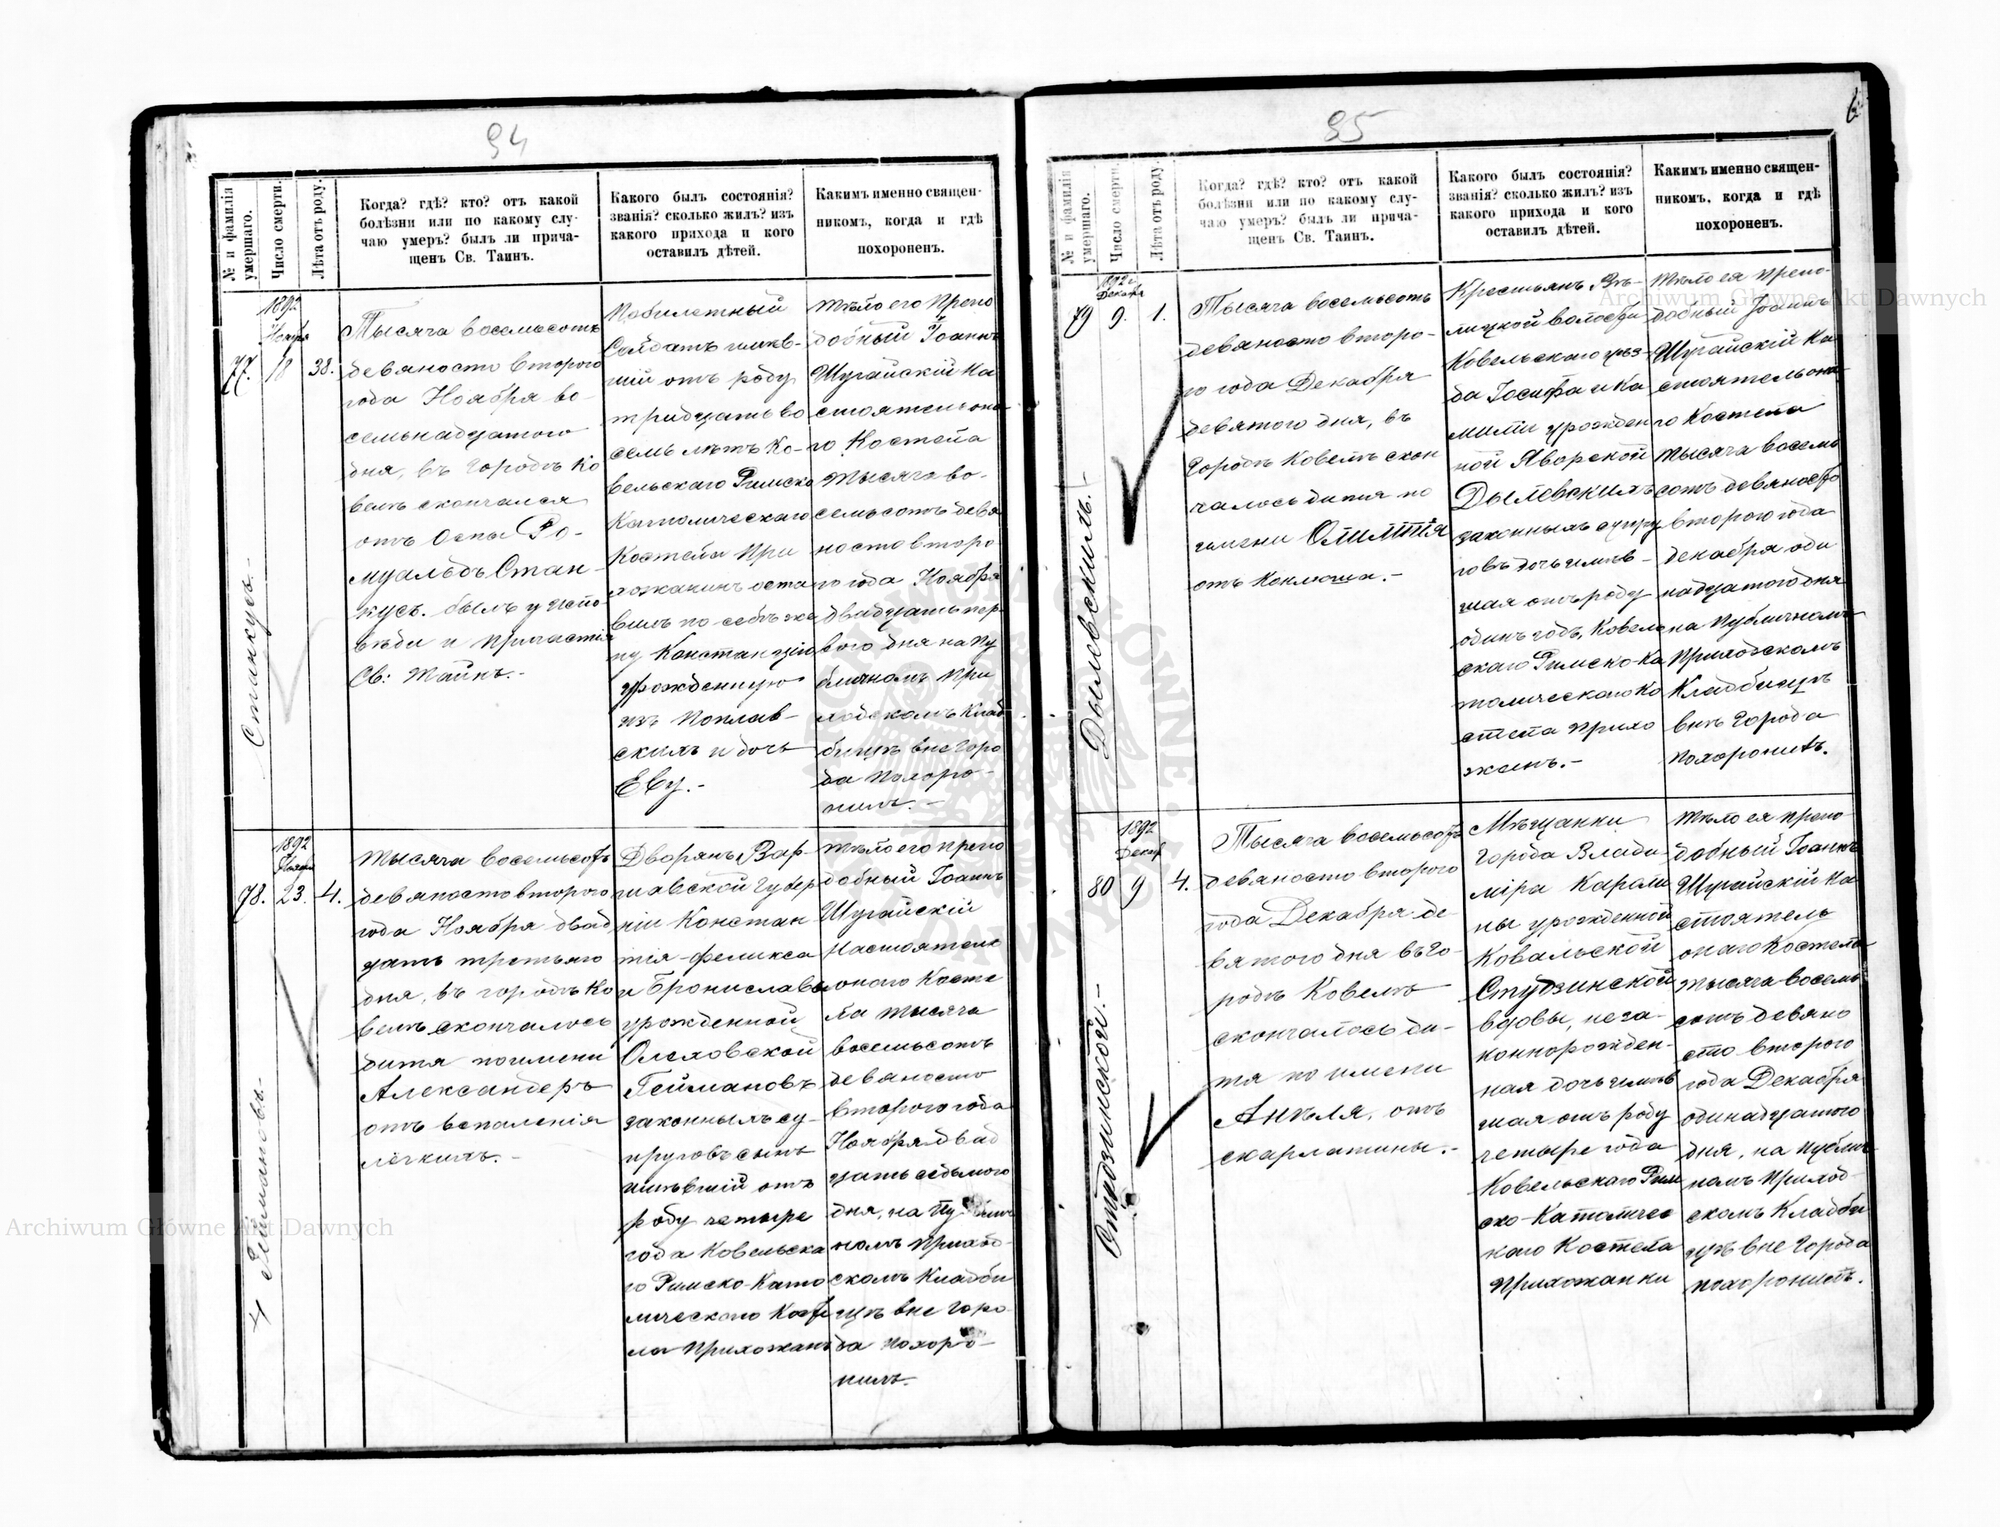 94
№ и фамилія умершаго.
Число смерти.
Лѣта отъ роду.
Когда? гдѣ? кто? отъ какой
болѣзни или по какому слу-
чаю умеръ? былъ ли прича-
щенъ Св. Таинъ.
Какого былъ состоянія?
званія? сколько жилъ? изъ
какого прихода и кого
оставилъ дѣтей.
Какимъ именно священ-
никомъ, когда и гдѣ
похороненъ.
77.
Станкусъ.-
1892
Ноября
18
38.
Тысяча восемьсотъ
девяносто второго
года Ноября во-
семьнадцатого
дня, въ городѣ Ко
велѣ скончался
отъ Оспы Ро-
муальдъ Стан-
кусъ. былъ у испо-
вѣди и причастія
Св: Тайнъ.-
Побилетный
Солдатъ имѣв-
шій отъ роду
тридцать во
семь лѣтъ Ко-
вельскаго Римско
Католическаго
Костела при
хожанинъ оста
вилъ по себѣ же
ну Констанцію
урожденную
изъ Поплав-
скихъ и дочь
Еву.-
Тѣло его Препо
добный Іоаннъ
Шугайскій На
стоятель она-
го Костела
тысяча во-
семьсотъ девя
носто второ
го года Ноября
двадцать пер-
вого дня на Пу
бличномъ При
ходскомъ Клад
бищѣ вне горо
да похоро-
нилъ.-
78.
Геймановъ.-
1892
Ноября
23.
4.
Тысяча восемьсотъ
девяносто второго
года Ноября двад
цать третьяго
дня, въ городѣ Ко
велѣ скончалось
дитя по имени
Александеръ
отъ воспаленія
легкихъ.-
Дворянъ Вар-
шавской Губер
ніи Констан
тія-Феликса
и Брониславы
урожденной
Олеховской
Геймановъ
законныхъ су-
пруговъ сынъ
имѣвшій отъ
роду четыре
года Ковельска
го Римско-Като
лическаго Косте
ла Прихожанъ
Тѣло его препо
добный Іоаннъ
Шугайскій
Настоятель
онаго Косте
ла тысяча
восемьсотъ
девяносто
второго года
Ноября двад
цать седьмого
дня, на Публич
номъ Приход-
скомъ Кладби
щѣ вне горо
да похоро-
нилъ.
95
№ и фамилія умершаго.
Число смерти.
Лѣта отъ роду.
Когда? гдѣ? кто? отъ какой
болѣзни или по какому слу-
чаю умеръ? былъ ли прича-
щенъ Св. Таинъ.
Какого былъ состоянія?
званія? сколько жилъ? изъ
какого прихода и кого
оставилъ дѣтей.
Какимъ именно священ-
никомъ, когда и гдѣ
похороненъ.
79
Дылевскихъ.-
1892 г
Декабр
9.
1.
Тысяча восемьсотъ
девяносто второ-
го года Декабря
девятого дня, въ
городѣ Ковелѣ скон
чалось дитя по
имени Олимпія
отъ Коклюша.-
Крестьянъ
волости
Ковельскаго уѣз
да Іосифа и Ка
милии урожден
ной Яворской
Дылевскихъ
законныхъ супру
говъ дочь имѣв-
шая отъ роду
одинъ годъ, Ковель
скаго Римско-Ка
толическаго Ко
стела прихо
жанъ.-
Тѣло ея Препо-
добный Іоаннъ
Шугайскій На
стоятель она-
го Костела
тысяча восемь
сотъ девяносто
второго года
декабря оди
надцатого дня
на Публичномъ
Приходскомъ
Кладбищѣ
внѣ города
похоронилъ.
80
Студзинской.-
1892
Декаб
9
4.
Тысяча восемьсотъ
девяносто второго
года Декабря де-
вятого дня въ го-
родѣ Ковелѣ
скончалось ди-
тя по имени
Анѣля, отъ
скарлатины.-
Мѣщанки
города Влади
міра Кароли
ны урожденной
Ковальской
Студзинской
вдовы, неза-
коннорожден-
ная дочь имѣв
шая отъ роду
четыре года
Ковельскаго Рим
ско-Католичес
каго Костела
Прихожанки
Тѣло ея препо-
добный Іоаннъ
Шугайскій На
стоятель
онаго Костела
тысяча восемь
сотъ девяно
сто второго
года Декабря
одинадцатого
дня, на Публич
номъ Приход-
скомъ Кладби
щѣ вне города
похоронилъ.
Archiwum Główne Akt Dawnych
Archiwum Główne Akt Dawnych